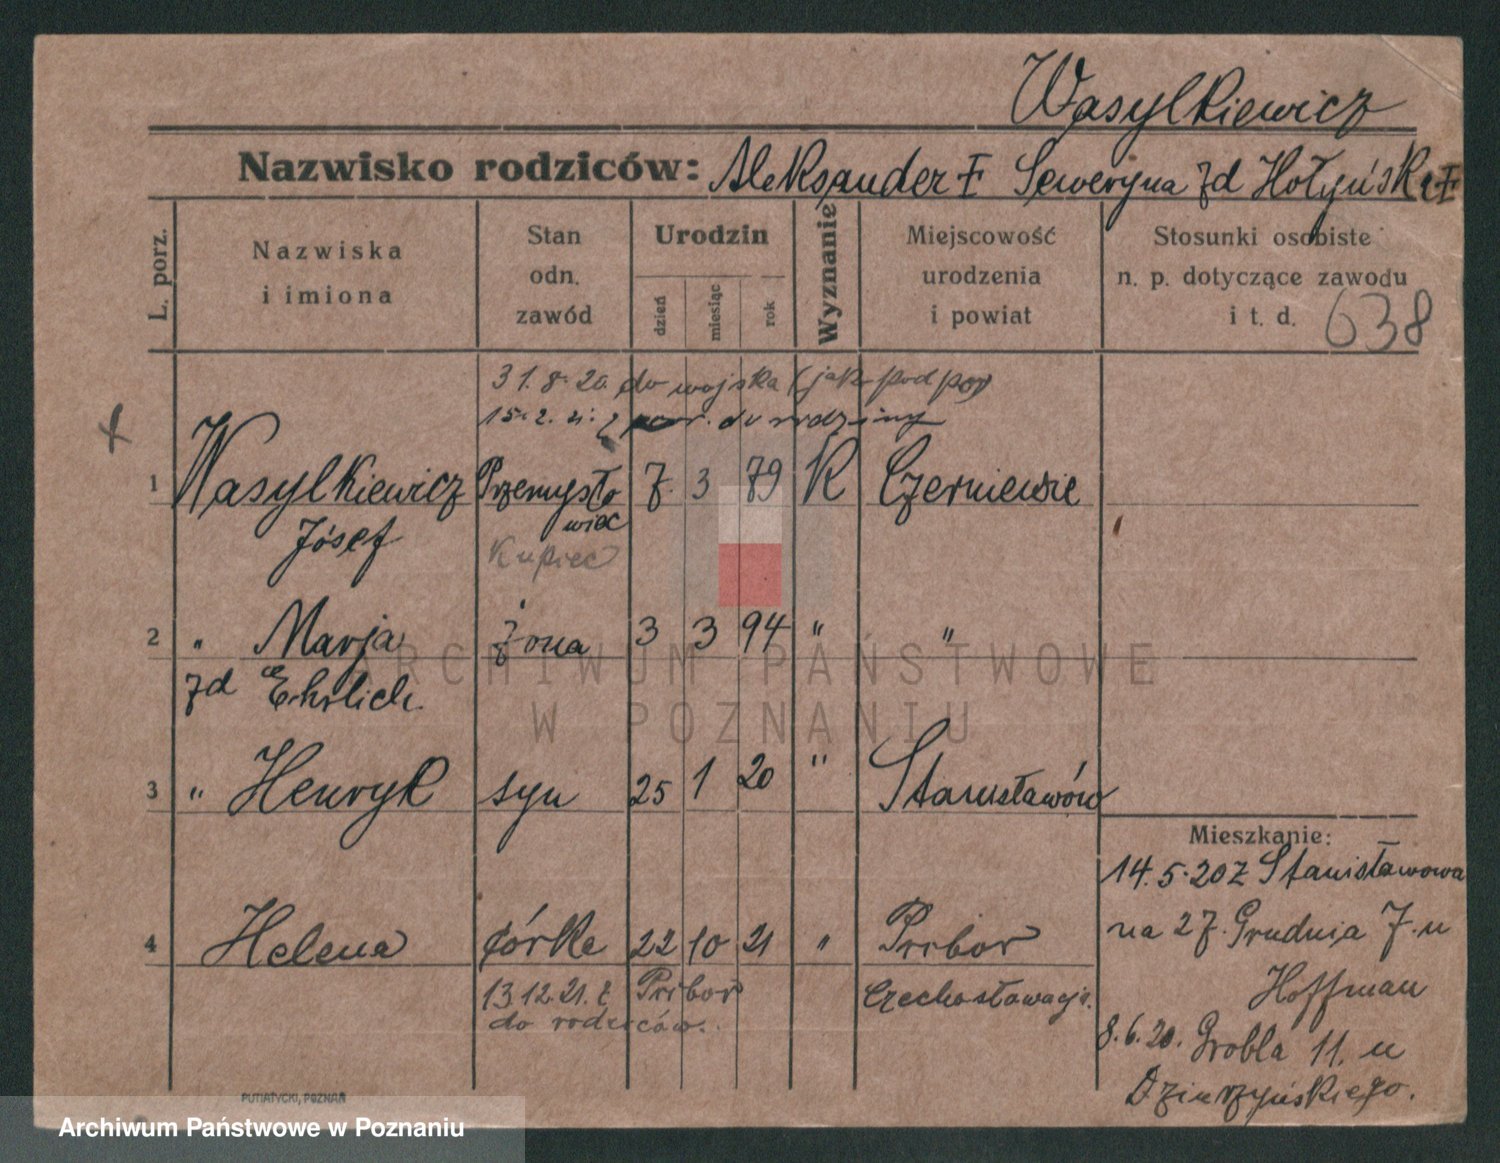 Wasylkiewicz
Nazwisko rodziców: Aleksander Ŧ Seweryna zd Hołyńska Ŧ
L. porz.
Nazwiska
i imiona
Stan
odn.
zawód
Urodzin
dzień
miesiąc
rok
Wyznanie
Miejscowość
urodzenia
i powiat
Stosunki osobiste
n. p. dotyczące zawodu
i t. d. 638
31.8.20. do wojska (jako podpor)
15.2.21. z do rodziny
1 Wasylkiewicz Przemysło 7. 3 79 K Czerniewie
Józef wiec
Kupiec
2 " Marja żona 3 3 94 " "
zd Ehrlich
3 " Henryk syn 25 1 20 " Stanisławów
Mieszkanie:
14.5.20 z Stanisławowa
na 27. Grudnia 7. u
Hoffman
8.6.20. Grobla 11. u
Dziurzyńskiego.
4 Helena córka 22 10 21 " Pribor
13.12.21. z Pribor Czechosłowacja.
do rodziców.
PUTIATYCKI, POZNAŃ
ARCHIWUM PAŃSTWOWE
W POZNANIU
Archiwum Państwowe w Poznaniu